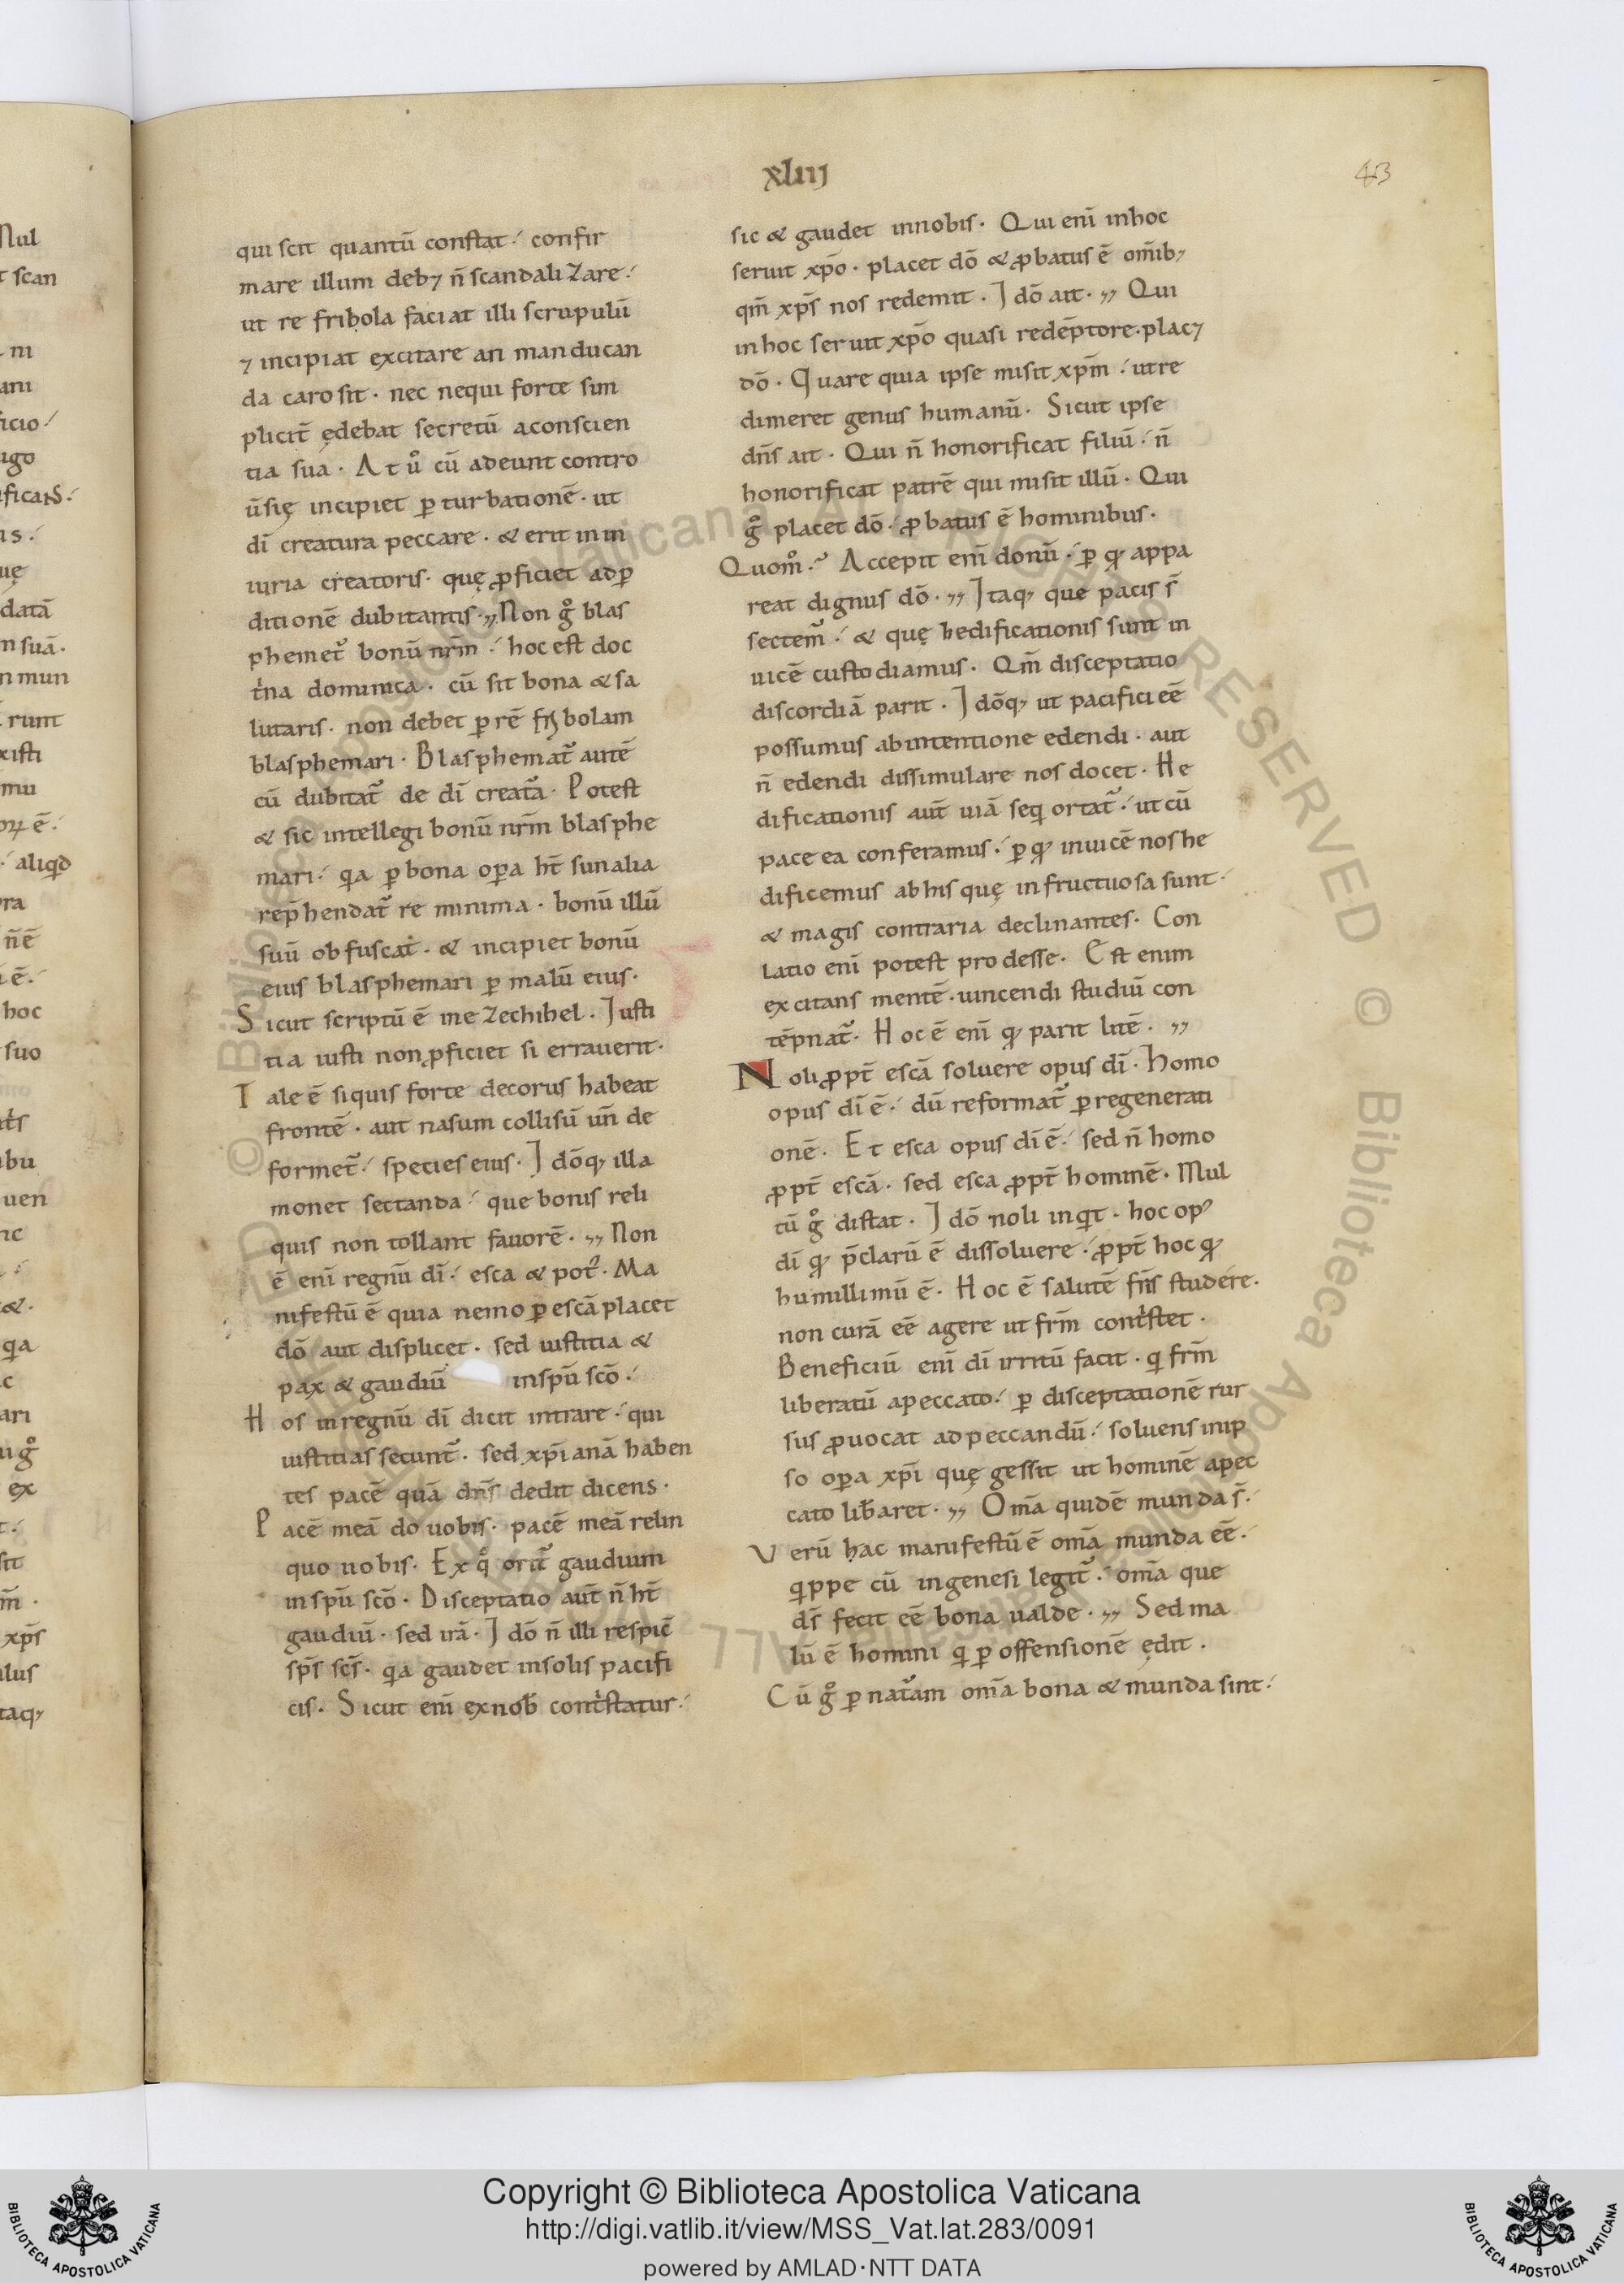 xliij
43
qui scit quantū constat· confir
mare illum deb⁊ n̄ scandalizare·
ut re fribola faciat illi scrupulū
⁊ incipiat excitare an manducan
da caro sit· nec nequi forte sim
plicit̄ ędebat secretū aconscien
tia sua· At ůͦ cū adeunt contro
ūsię incipiet ꝑturbationē· ut
dī creatura peccare· & erit in in
iuria creatoris· quę ꝓficiet adꝑ
ditionē dubitantis·,, Non gͦ blas
phemet᷑ bonū nr̄m· hoc est doc
tⁱna dominica· cū sit bona & sa
lutaris· non debet ꝑ rē fribolam
blasphemari· Blasphemat᷑ autē
cū dubitat᷑ de dī creat᷑a· Potest
& sic intellegi bonū nr̄m blasphe
mari· qa ꝑ bona oꝑa ht̄ sunalia
rep̄hendat᷑ re minima· bonū illū
suū obfuscat· & incipiet bonū
eius blasphemari ꝑ malū eius·
Sicut scriptū ē inezechihel· Justi
tia iusti non ꝓficiet si errauerit·
Tale ē siquis forte decorus habeat
frontē· aut nasum collisū un̄ de
formet᷑· species eius· Jdōq, illa
monet sectanda· que bonis reli
quis non tollant fauorē·,, Non
ē enī regnū dī· esca & pot᷒· Ma
nifestū ē quia nemo ꝑ escā placet
dō aut displicet· sed iustitia &
pax & gaudiū inspū scō·
Hos in regnū dī dicit intrare· qui
iustitias secunt᷑· sed xp̄ianā haben
tes pacē quā dn̄s dedit dicens·
Pacē meā do uobis· pacē meā relin
quo uobis· Ex qͦ orit᷑ gaudium
inspū scō· Disceptatio aut̄ n̄ ht̄
gaudiū· sed irā· Jdō n̄ illi respic̄
sp̄s sc̄s· qa gaudet insolis pacifi
cis· Sicut enī exnob̄ contⁱstatur·
sic & gaudet innobis· Qui enī inhoc
seruit xp̄o· placet dō & ꝓbatus ē om̄ib,
qm̄ xp̄s nos redemit· Jdō ait·,, Qui
inhoc seruit xp̄o quasi redēptore· plac⁊
dō· Quare quia ipse misit xp̄m· utre
dimeret genus humanū· Sicut ipse
dn̄s ait· Qui n̄ honorificat filiū· n̄
honorificat patrē qui misit illū· Qui
gͦ placet dō· ꝓbatus ē hominibus·
Quomͦ· Accepit enī donū· ꝑ qđ appa
reat dignus dō·,, Jtaq, que pacis s̄
sectem᷑· & quę hedificationis sunt in
uicē custodiamus· Qm̄ disceptatio
discordiā parit· Jdōq, ut pacifici eē
possumus abintentione edendi· aut
n̄ edendi dissimulare nos docet· He
dificationis aut̄ uiā seq ortat᷑· ut cū
pace ea conferamus· ꝑ qđ inuicē nos he
dificemus ab his quę infructuosa sunt·
& magis contraria declinantes· Con
latio enī potest prodesse· Est enim
excitans mentē· uincendi studiū con
tēpnat᷑· Hoc ē enī qđ parit litē·,,
Noli ꝓpt̄ escā soluere opus dī· Homo
opus dī ē· dū reformat᷑ ꝑ regenerati
onē· Et esca opus dī ē· sed n̄ homo
ꝓpt̄ escā· sed esca ꝓpt̄ hominē· Mul
tū gͦ distat· Jdō noli inqt· hoc op᷒
dī qđ p̄clarū ē dissoluere· ꝓpt̄ hoc qđ
humillimū ē· Hoc ē salutē frīs studere·
non curā eē agere ut frm̄ contⁱstet·
Beneficiū enī dī irritū facit· q frm̄
liberatū apeccato· ꝑ disceptationē rur
sus ꝓuocat adpeccandū· soluens inip
so oꝑa xp̄i quę gessit ut hominē apec
cato lib̄aret·,, Om̄a quidē munda s̄·
Verū hac manifestū ē om̄a munda eē·
qppe cū ingenesi legit᷑· om̄a que
ds̄ fecit eē bona ualde·,, Sed ma
lū ē homini q ꝑ offensionē ędit·
Cū gͦ ꝑ nat᷑am om̄a bona & munda sint·
Copyright © Biblioteca Apostolica Vaticana
http://digi.vatlib.it/view/MSS_Vat.lat.283/0091
powered by AMLAD·NTT DATA
BIBLIOTECA APOSTOLICA VATICANA
BIBLIOTECA APOSTOLICA VATICANA